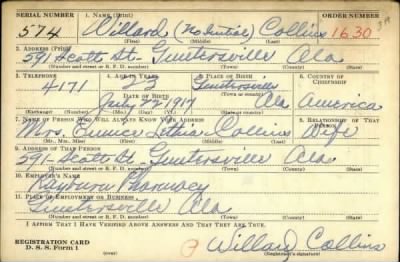 SERIAL NUMBER 1. NAME (Print) ORDER NUMBER
574 Willard (No Initial) Collins 1630
(First) (Middle) (Last)
2. ADDRESS (Print)
591 Scott St. Guntersville Ala
(Number and street or R. F. D. number) (Town) (County) (State)
3. TELEPHONE 4. AGE IN YEARS 5. PLACE OF BIRTH 6. COUNTRY OF CITIZENSHIP
4171 23 Guntersville
DATE OF BIRTH (Town or county)
July 22 1917 Ala America
(Exchange) (Number) (Mo.) (Day) (Yr.) (State or country)
7. NAME OF PERSON WHO WILL ALWAYS KNOW YOUR ADDRESS 8. RELATIONSHIP OF THAT PERSON
Mrs. Eunice Collins Wife
(Mr., Mrs., Miss) (First) (Middle) (Last)
9. ADDRESS OF THAT PERSON
591- Scott St- Guntersville Ala
(Number and street or R. F. D. number) (Town) (County) (State)
10. EMPLOYER'S NAME
Rayburn Pharmacy
11. PLACE OF EMPLOYMENT OR BUSINESS
Guntersville Ala
(Number and street or R. F. D. number) (Town) (County) (State)
I AFFIRM THAT I HAVE VERIFIED ABOVE ANSWERS AND THAT THEY ARE TRUE.
REGISTRATION CARD
D. S. S. Form 1 Willard Collins
(Registrant's signature)